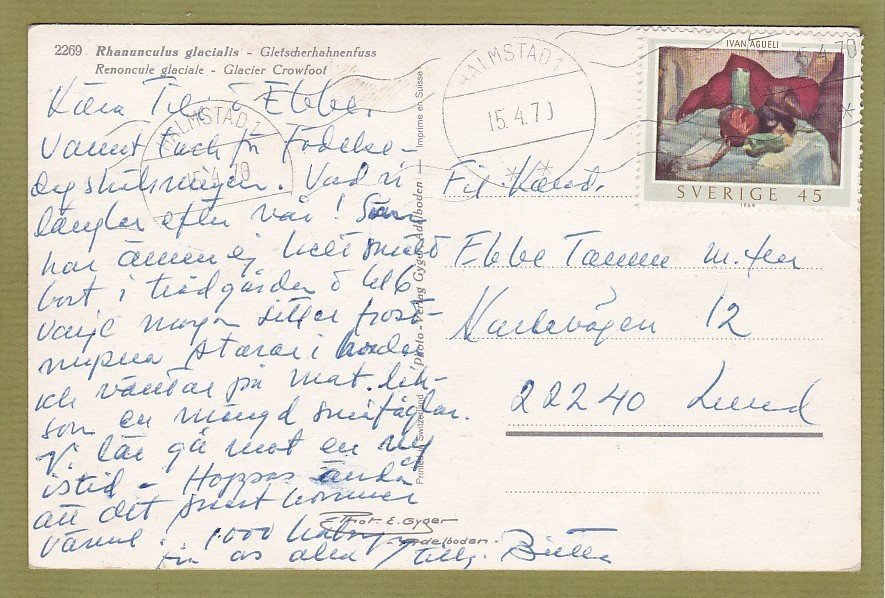 2269 Rhanunculus glacialis - Gletscherhahnenfuss
Renoncule glaciale - Glacier Crowfoot
Kära Til o Ebbe,
Varmt Tack för Födelse-
dagshälsningen. Vad vi
längtar efter vår! Snön
har ännu ej helt smält
bort i trädgården o kl 6
varje morgon sitter frost-
nupna starar i
och väntar på mat. Lik-
som en mängd småfåglar.
Vi lär gå mot en ny
istid - Hoppas ändå
att det snart kommer
värme. 1000
från oss alla
HALMSTAD 1
15.4.70
HALMSTAD 1
15.4.70
15.4.70
IVAN AGUÉLI
SVERIGE 45
1969
Fil. Kand.
Ebbe Tamm m. fru
12
22240 Lund
Printed in Switzerland — Photo-Verlag Gyger, Adelboden — Imprimé en Suisse
Phot. E. Gyger
Adelboden.